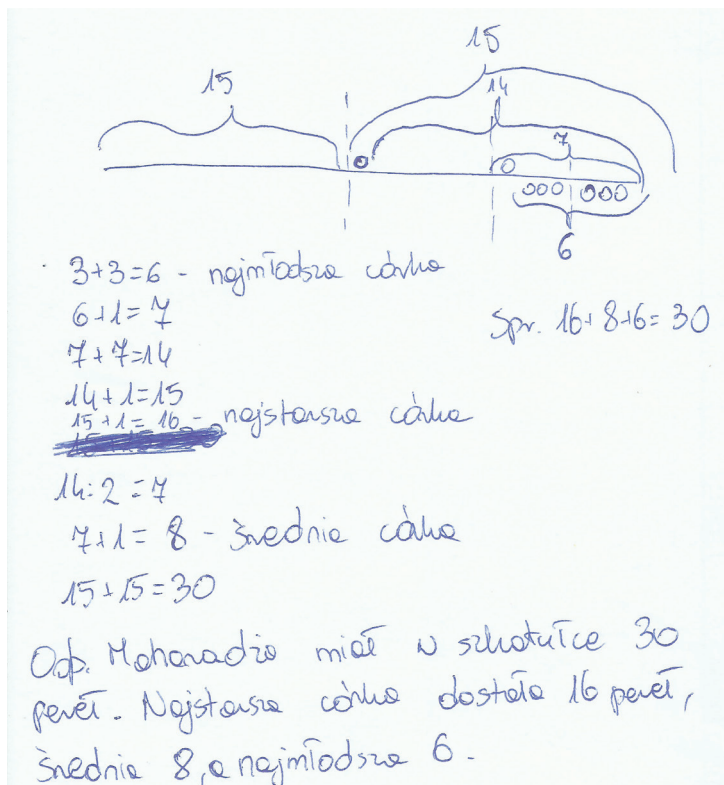 15
15
14
7
6
3+3=6 - najmłodsza córka
6+1=7
Spr. 16+8+6=30
7+7=14
14+1=15
15+1=16 - najstarsza córka
14:2=7
7+1=8 - średnia córka
15+15=30
Odp. Maharadża miał w szkatułce 30
pereł. Najstarsza córka dostała 16 pereł,
średnia 8, a najmłodsza 6.